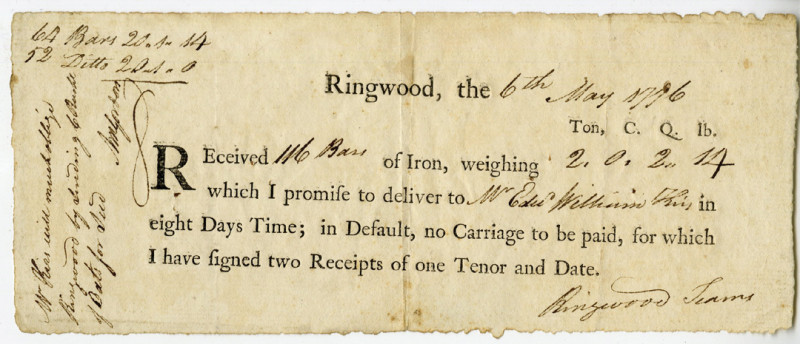 64 Bars 20..1..14
52 Ditto 20..1..0
Ringwood, the 6th May 1776
Ton, C. Q. lb.
REceived 116 Bars of Iron, weighing 2.. 0.. 2.. 14
which I promiſe to deliver to Mr Edwd William Kiers in
eight Days Time; in Default, no Carriage to be paid, for which
I have ſigned two Receipts of one Tenor and Date.
Ringwood Teams
Mr Kiers will much oblige
Ringwood by sending 6 Bushls
of Oats for Seed